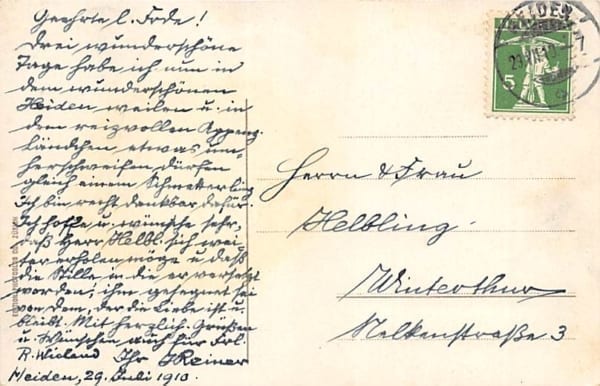 Geehrte l. Frde!
Drei wunderschöne
Tage habe ich nun in
dem wunderschönen
Heiden weilen u. in
dem reizvollen Appenz.
ländchen etwas um-
herschweifen dürfen
gleich einem Schmetterling
Ich bin recht dankbar dafür.
Ich hoffe u. wünsche sehr,
daß Herr Helbl. sich wei-
ter erholen möge u. daß
die Stille in die er versetzt
worden, ihm gesegnet sei
von Dem, der die Liebe ist u.
bleibt. Mit herzlich. Grüßen
u. Wünschen auch für Frl.
R. Wieland Ihr
Heiden, 29. Juli 1910.
HEIDEN
5
Herrn & Frau
Helbling
Winterthur
Nelkenstraße 3